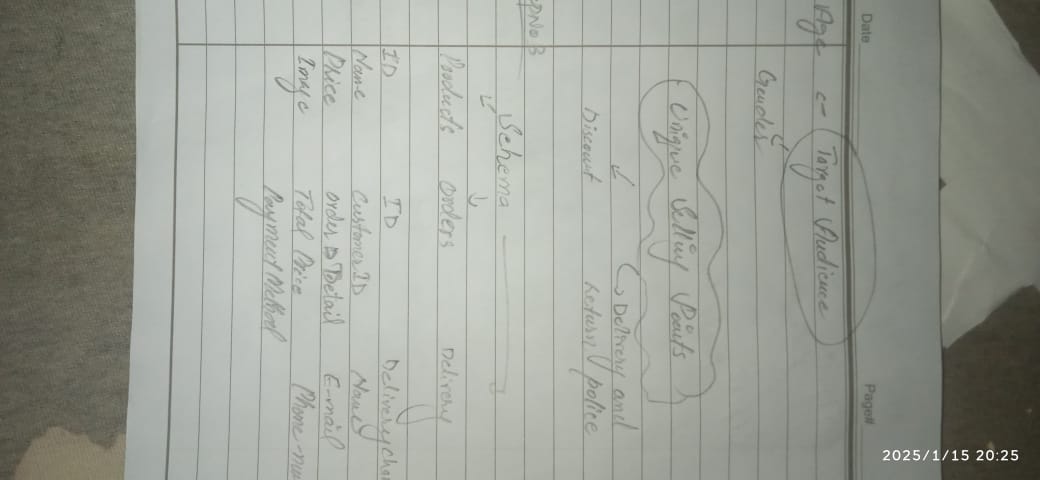 Date
Page#
Age Target Audience
Gender
Unique Selling Points
Discount Delivery and
return police
Schema
Products Orders Delivery
ID ID Delivery
Name Customer ID Name
Price order Detail E-mail
Image Total Price Phone
Payment Method
2025/1/15 20:25